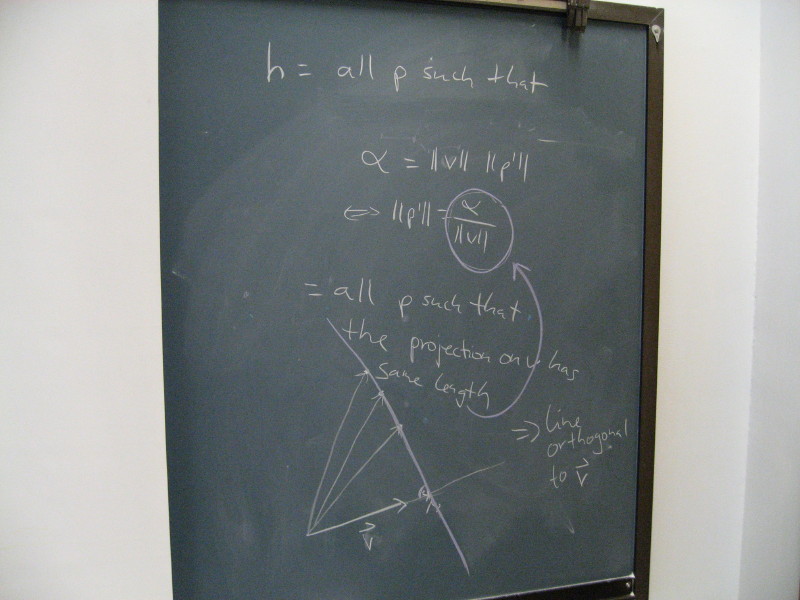 h = all p such that
α = ||v|| ||p'||
⇔ ||p'|| = α / ||v||
= all p such that
the projection on v has
same length
⇒ line
orthogonal
to v⃗
v⃗